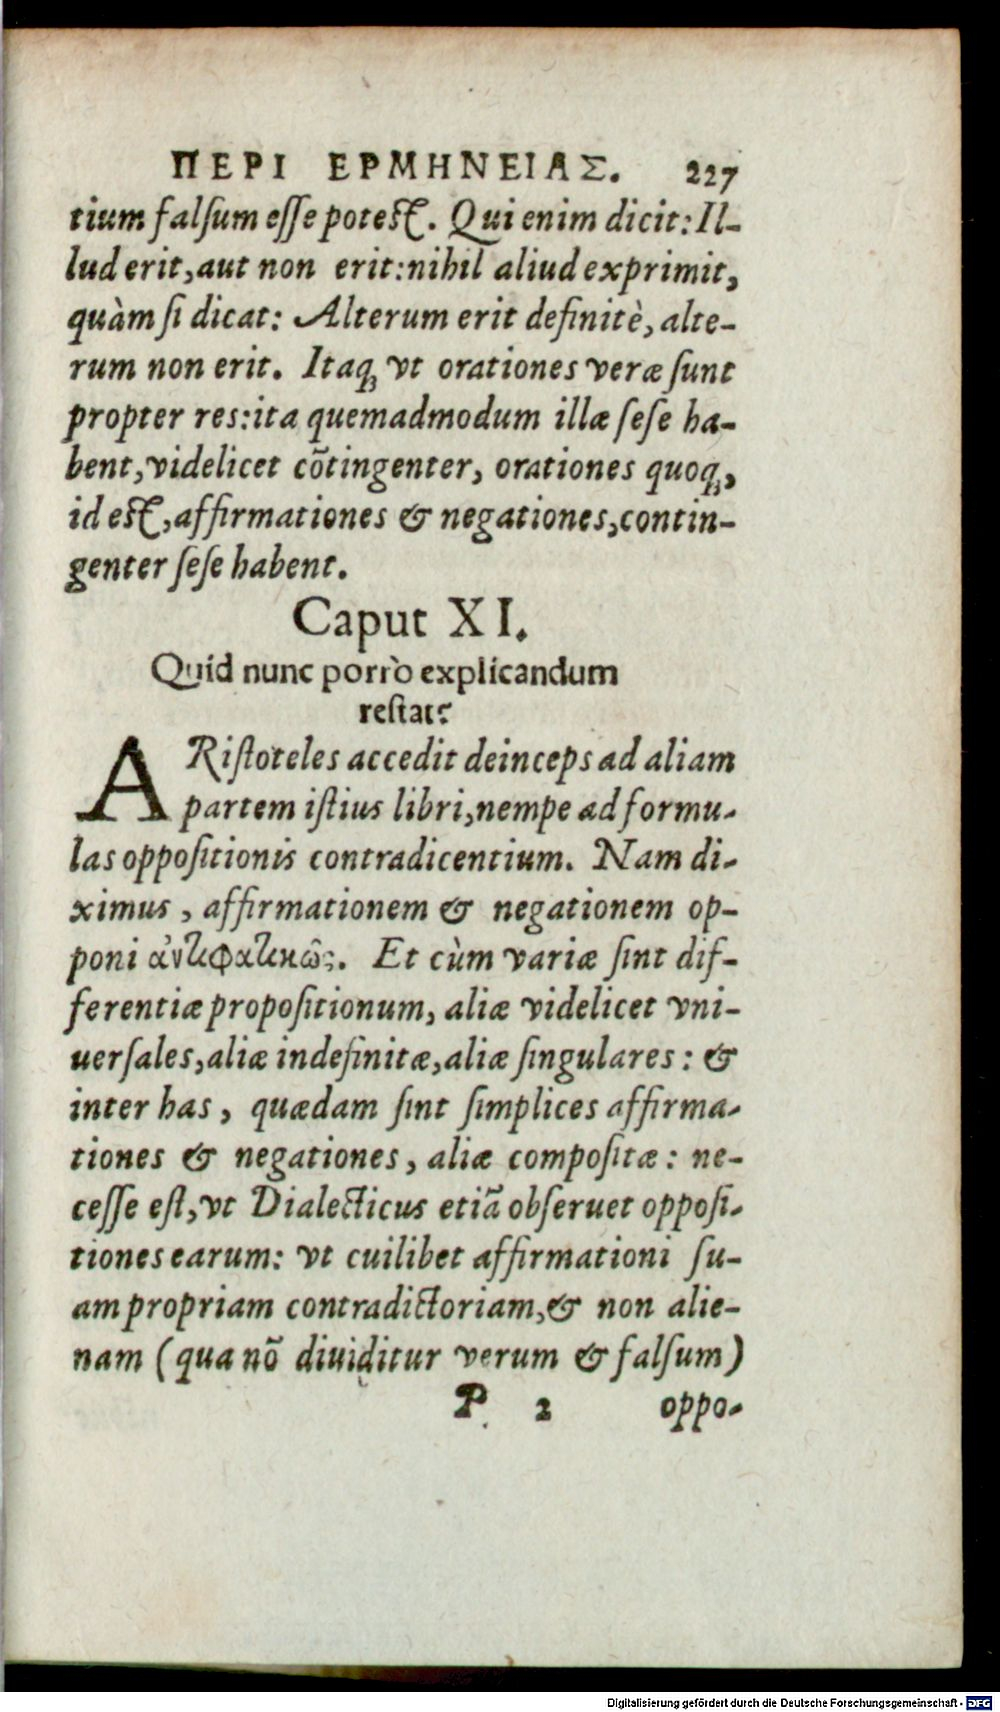 ΠΕΡΙ ΕΡΜΗΝΕΙΑΣ. 227
tium falſum eſſe poteſt. Qui enim dicit: Il-
lud erit, aut non erit: nihil aliud exprimit,
quàm ſi dicat: Alterum erit definitè, alte-
rum non erit. Itaq; vt orationes veræ ſunt
propter res: ita quemadmodum illæ ſeſe ha-
bent, videlicet cõtingenter, orationes quoq;,
id eſt, affirmationes & negationes, contin-
genter ſeſe habent.
Caput XI.
Quid nunc porrò explicandum
reſtat?
ARiſtoteles accedit deinceps ad aliam
partem iſtius libri, nempe ad formu-
las oppoſitionis contradicentium. Nam di-
ximus, affirmationem & negationem op-
poni ἀντιφατικῶς. Et cùm variæ ſint dif-
ferentiæ propoſitionum, aliæ videlicet vni-
uerſales, aliæ indefinitæ, aliæ ſingulares: &
inter has, quædam ſint ſimplices affirma-
tiones & negationes, aliæ compoſitæ: ne-
ceſſe eſt, vt Dialecticus etiã obſeruet oppoſi-
tiones earum: vt cuilibet affirmationi ſu-
am propriam contradictoriam, & non alie-
nam (qua nõ diuiditur verum & falſum)
P 2 oppo-
Digitalisierung gefördert durch die Deutsche Forschungsgemeinschaft - DFG